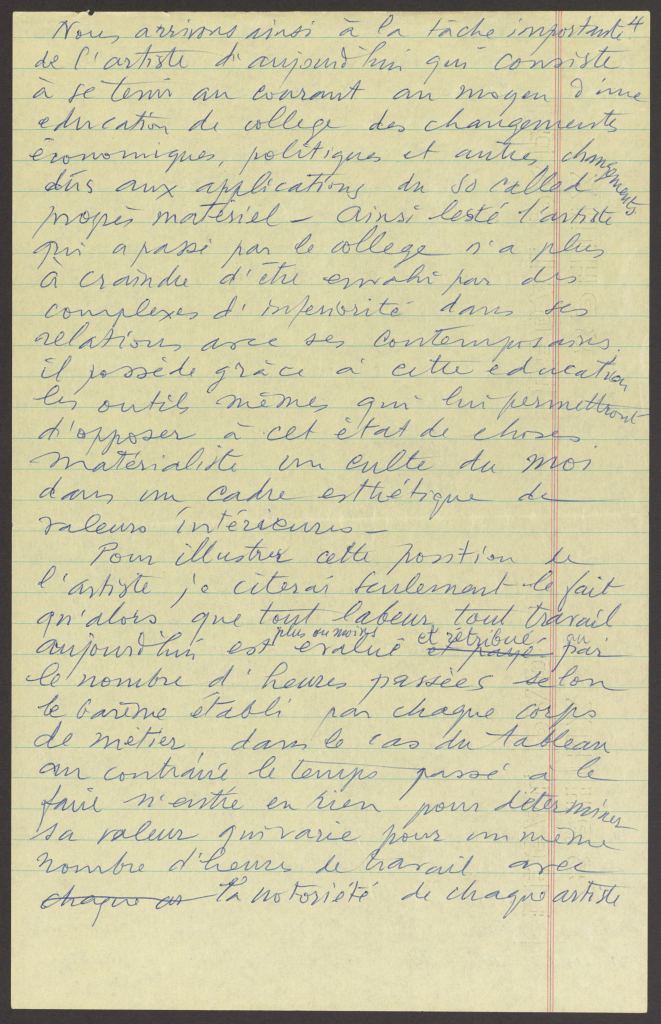 4
Nous arrivons ainsi à la tâche importante
de l'artiste d'aujourd'hui qui consiste
à se tenir au courant au moyen d'une
education de college des changements
économiques, politiques et autres changements
dûs aux applications du so called
progrès matériel — Ainsi lesté l'artiste
qui a passé par le college n'a plus
à craindre d'être envahi par des
complexes d'inferiorité dans ses
relations avec ses contemporains.
il possède grâce à cette education
les outils mêmes qui lui permettront
d'opposer à cet état de choses
matérialiste un culte du moi
dans un cadre esthétique de
valeurs intérieures —
Pour illustrer cette position de
l'artiste je citerai seulement le fait
qu'alors que tout labeur, tout travail
aujourd'hui est plus ou moins evalué et retribué et payé par
le nombre d'heures passées selon
le barême établi par chaque corps
de metier, dans le cas du tableau
au contraire le temps passé à le
faire n'entre en rien pour déterminer
sa valeur qui varie pour un même
nombre d'heures de travail avec
chaque ar la notoriété de chaque artiste